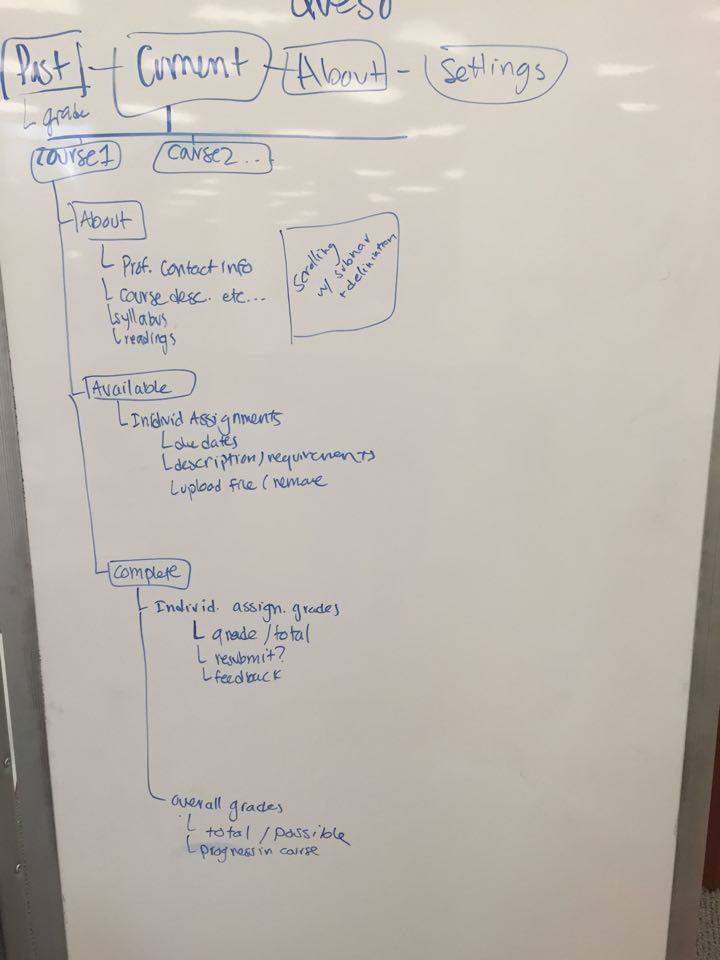 Queso
Past - Current - About - Settings
└ grade
course1 course2...
About
└ Prof. contact info
└ course desc. etc...
└ syllabus
└ readings
Scrolling
w/ subnav
+ deliniation
Available
└ Individ Assignments
└ due dates
└ description/requirements
└ upload file / remove
Complete
└ Individ. assign. grades
└ grade / total
└ resubmit?
└ feedback
overall grades
└ total / possible
└ progress in course